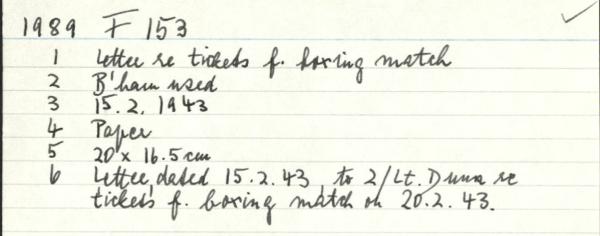 1989 F 153
1 Letter re tickets f. boxing match
2 B'ham used
3 15.2.1943
4 Paper
5 20 x 16.5cm
6 Letter, dated 15.2.43, to 2/Lt. Dunn re
tickets f. boxing match on 20.2.43.